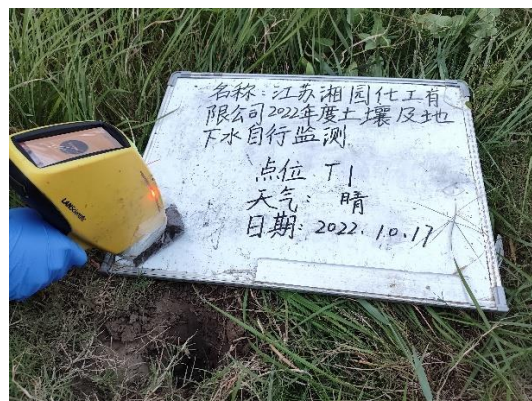 名称:江苏湘园化工有
限公司2022年度土壤及地
下水自行监测
点位 T1
天气: 晴
日期: 2022.10.17